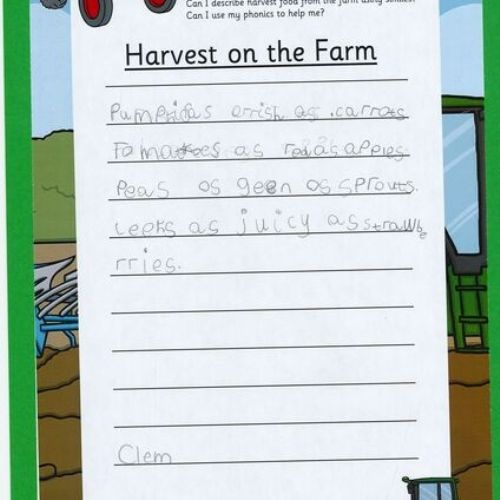 Can I describe harvest food from the farm using similes?
Can I use my phonics to help me?
Harvest on the Farm
Pumpkins orrish as carrots
Tomatoes as red as apples
Peas as geen as sprouts.
Leeks as juicy as strawbe
rries.
Clem